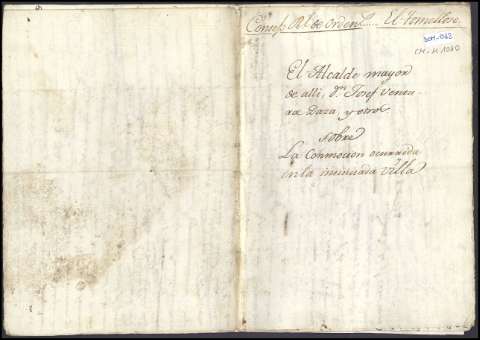 Consejo Rl. de Ordens.... El Tomelloso.
DOM-062
CM-H 1080
El Alcalde mayor
de alli, Dn. Josef Ventu-
ra Daza, y otros
sobre
La Conmocion ocurrida
en la insinuada Villa